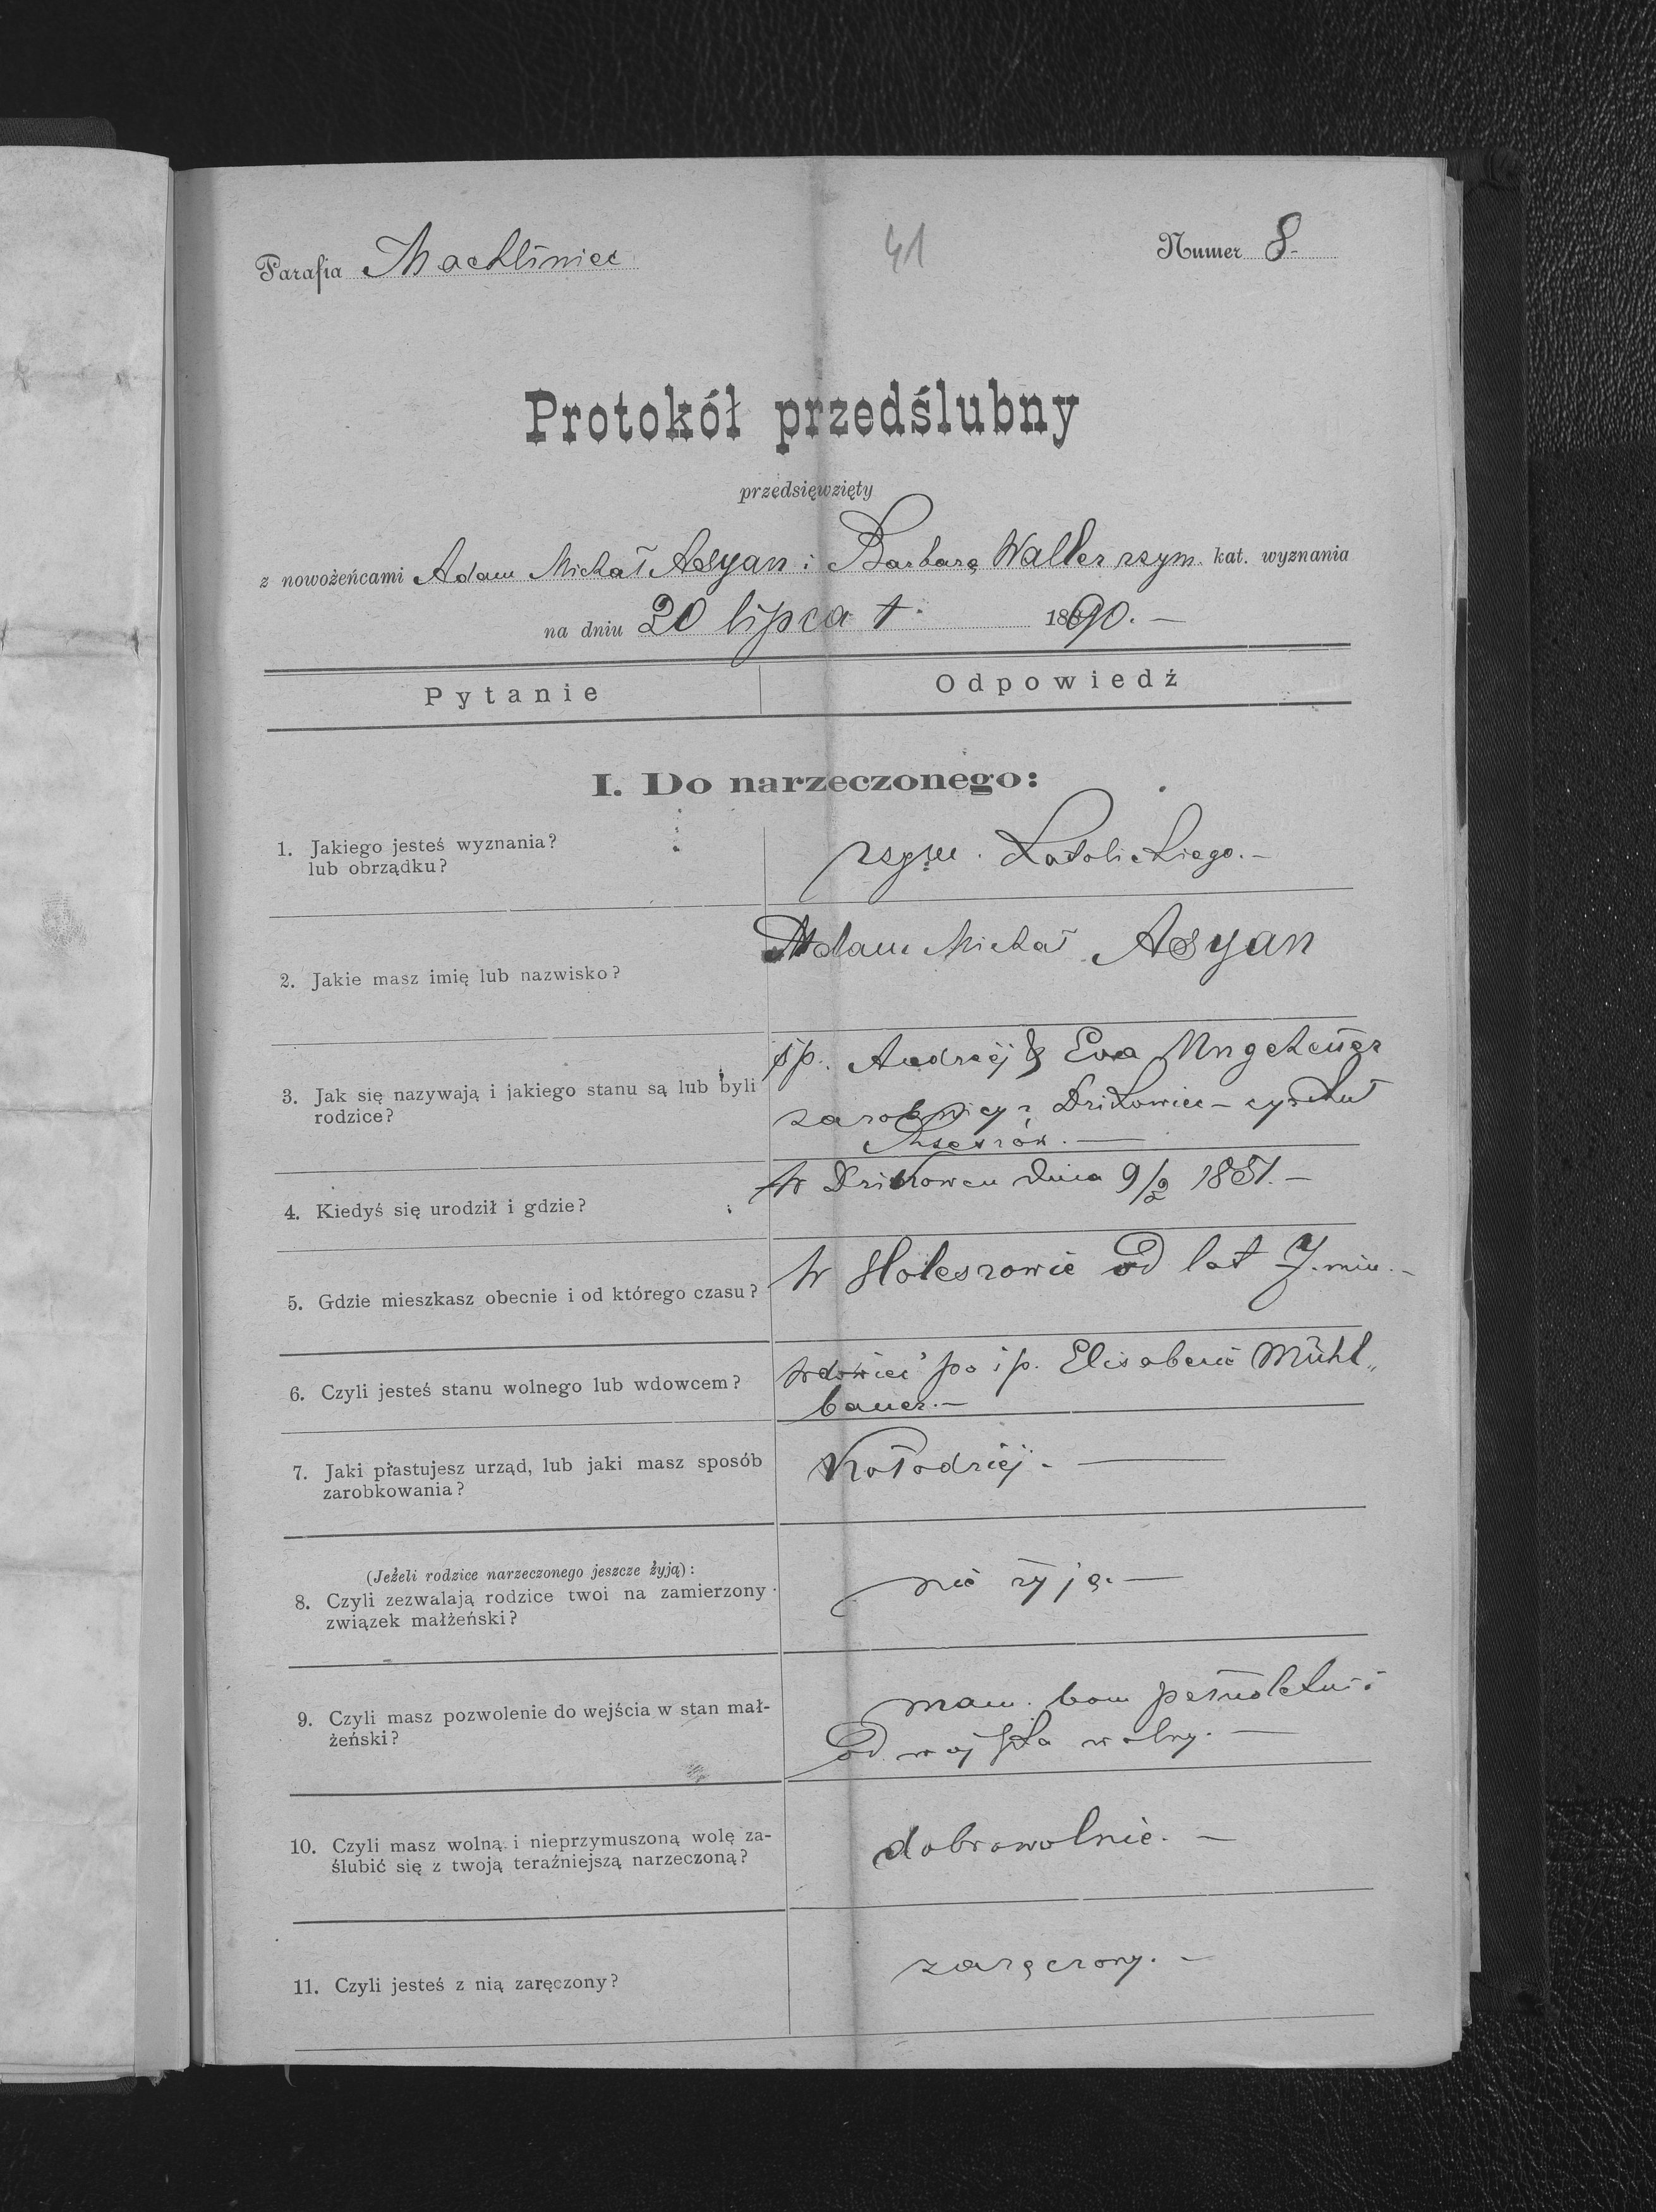 Parafia Machliniec
41
Numer 8.-
Protokół przedślubny
przedsięwzięty
z nowożeńcami Adam Michał Asyan i Barbarą Waller rzym. kat. wyznania
na dniu 20 lipca 1890. —
Pytanie Odpowiedź
I. Do narzeczonego:
1. Jakiego jesteś wyznania?
lub obrządku?
rzym. katolickiego. —
2. Jakie masz imię lub nazwisko?
Adam Michał Asyan
3. Jak się nazywają i jakiego stanu są lub byli
rodzice?
śp. Andrzéj & Eva Ungeheuer
zarobnicy z Dzikowiec — cyrkuł
Rzeszów. —
4. Kiedyś się urodził i gdzie?
w Dzikowcu dnia 9/2 1851. —
5. Gdzie mieszkasz obecnie i od którego czasu?
w Holeszowie od lat 7. miu. —
6. Czyli jesteś stanu wolnego lub wdowcem?
wdowiec po śp. Elisabecie Mühl„
bauer. —
7. Jaki piastujesz urząd, lub jaki masz sposób
zarobkowania?
Kołodziéj. —
(Jeżeli rodzice narzeczonego jeszcze żyją):
8. Czyli zezwalają rodzice twoi na zamierzony
związek małżeński?
nie żyją. —
9. Czyli masz pozwolenie do wejścia w stan mał-
żeński?
mam. bom pełnoletni i
od wojska wolny. —
10. Czyli masz wolną i nieprzymuszoną wolę za-
ślubić się z twoją teraźniejszą narzeczoną?
dobrowolnie. —
11. Czyli jesteś z nią zaręczony?
zaręczony. —